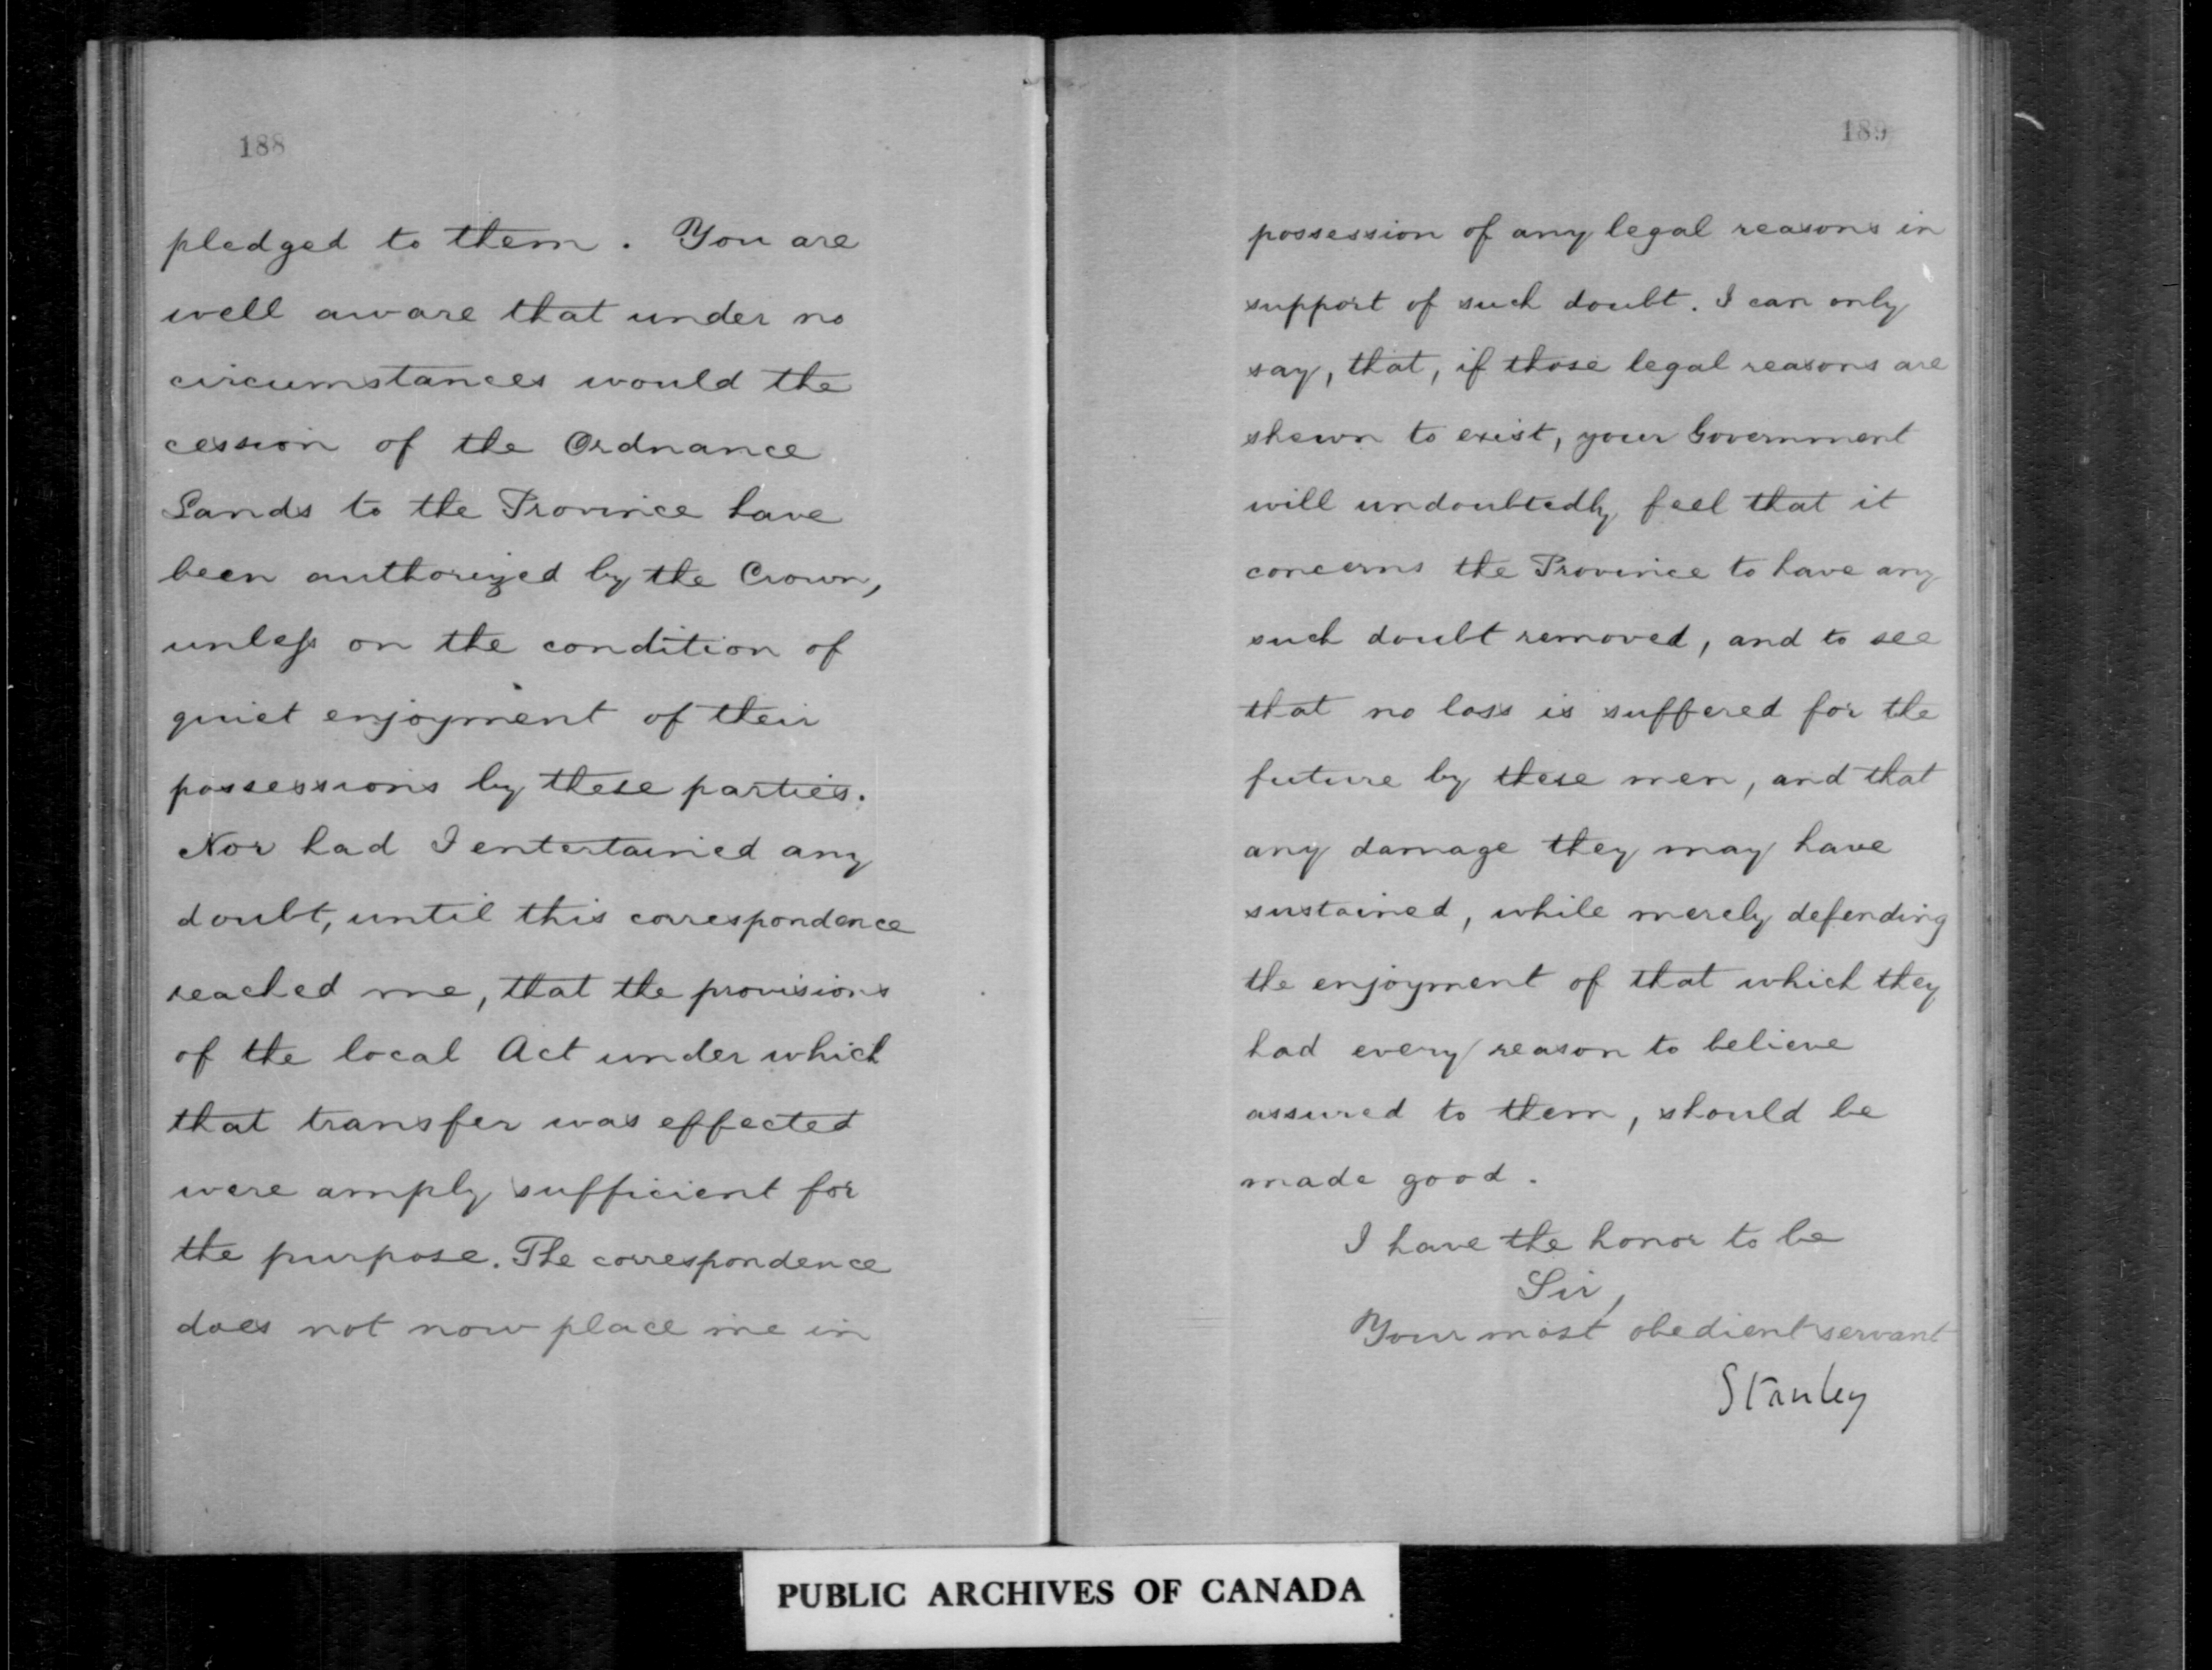 188
pledged to them. You are
well aware that under no
circumstances would the
cession of the Ordnance
Lands to the Province have
been authorized by the Crown,
unless on the condition of
quiet enjoyment of their
possessions by these parties.
Nor had I entertained any
doubt, until this correspondence
reached me, that the provisions
of the local Act under which
that transfer was effected
were amply sufficient for
the purpose. The correspondence
does not now place me in
189
possession of any legal reasons in
support of such doubt. I can only
say, that, if those legal reasons are
shewn to exist, your Government
will undoubtedly feel that it
concerns the Province to have any
such doubt removed, and to see
that no loss is suffered for the
future by these men, and that
any damage they may have
sustained, while merely defending
the enjoyment of that which they
had every reason to believe
assured to them, should be
made good.
I have the honor to be
Sir,
Your most obedient servant
Stanley
PUBLIC ARCHIVES OF CANADA